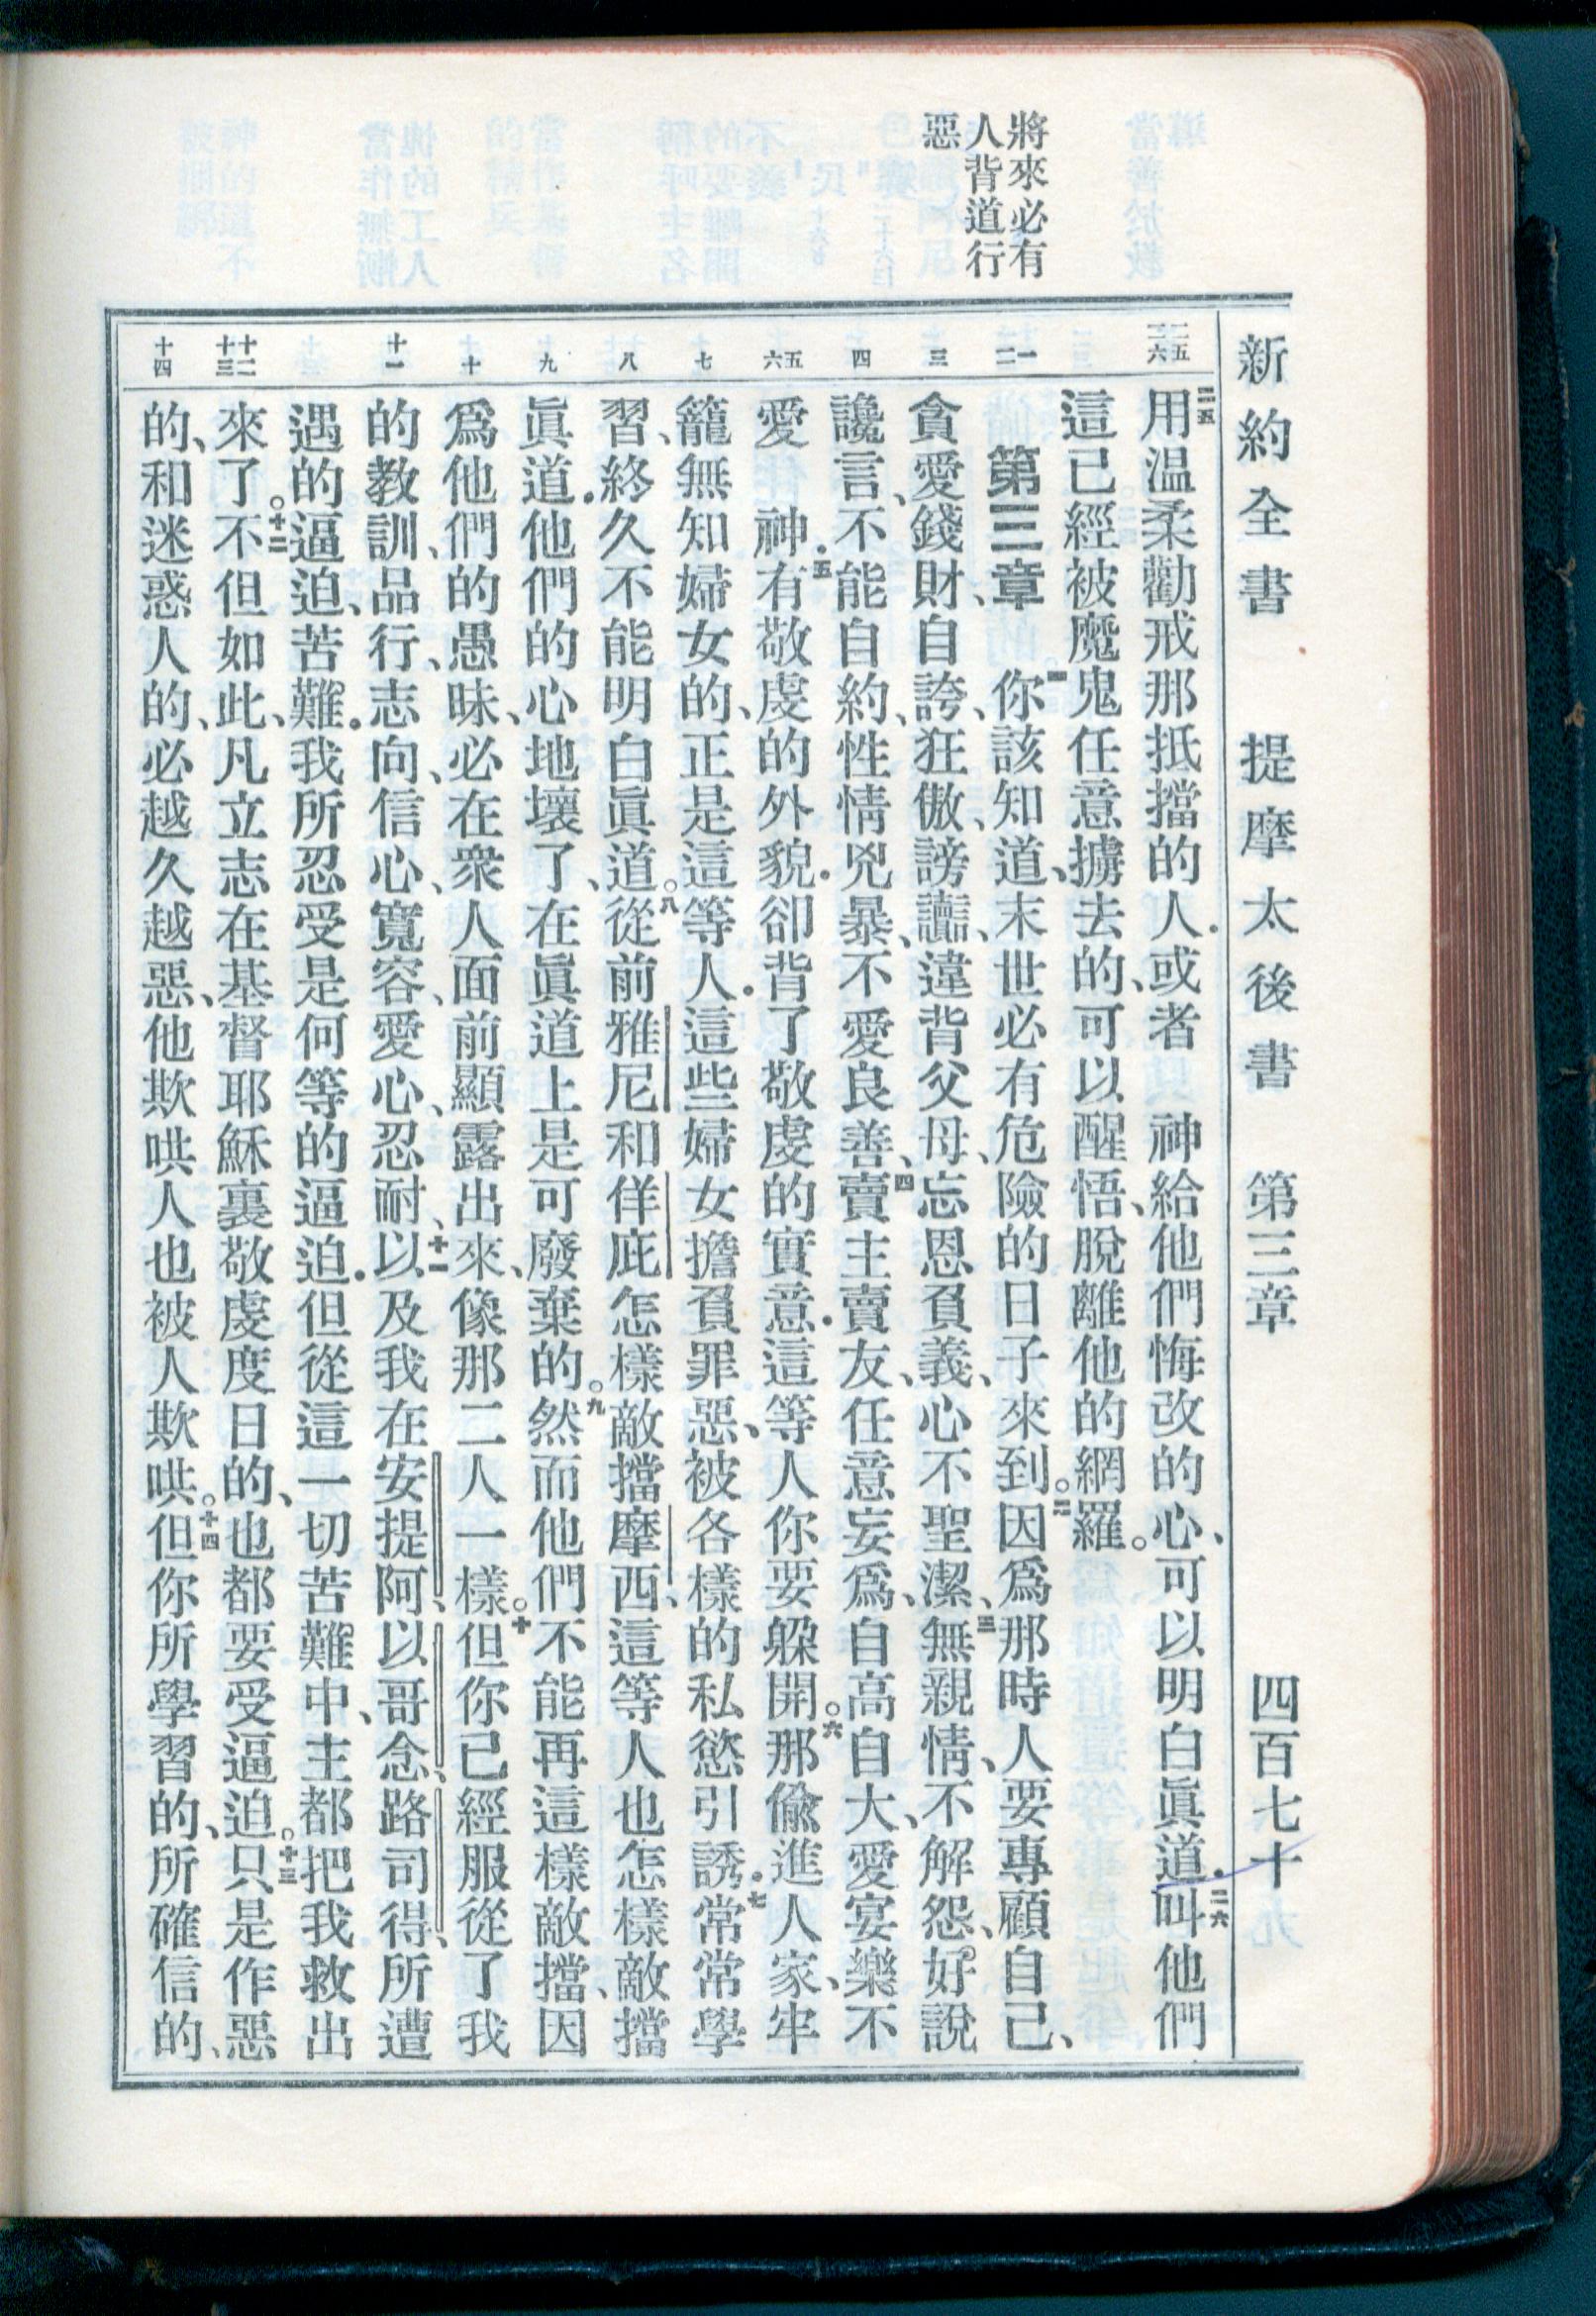 新約全書 提摩太後書 第三章 四百七十
將來必有
人背道行
惡
二五
二六
一
二
三
四
五
六
七
八
九
十
十一
十二
十三
十四
二五用温柔勸戒那抵擋的人．或者 神給他們悔改的心、可以明白眞道．二六叫他們
這已經被魔鬼任意擄去的、可以醒悟、脫離他的網羅。
第三章 一你該知道、末世必有危險的日子來到。二因爲那時人要專顧自己、
貪愛錢財、自誇、狂傲、謗讟、違背父母、忘恩負義、心不聖潔、三無親情、不解怨、好說
讒言、不能自約、性情兇暴、不愛良善、四賣主賣友、任意妄爲、自高自大、愛宴樂不
愛 神．五有敬虔的外貌．卻背了敬虔的實意．這等人你要躱開。六那偷進人家、牢
籠無知婦女的、正是這等人．這些婦女擔負罪惡、被各樣的私慾引誘．七常常學
習、終久不能明白眞道。八從前雅尼和佯庇怎樣敵擋摩西、這等人也怎樣敵擋
眞道．他們的心地壞了、在眞道上是可廢棄的。九然而他們不能再這樣敵擋、因
爲他們的愚昧、必在衆人面前顯露出來、像那二人一樣。十但你已經服從了我
的教訓、品行、志向、信心、寬容、愛心、忍耐、十一以及我在安提阿、以哥念、路司得、所遭
遇的逼迫、苦難．我所忍受是何等的逼迫．但從這一切苦難中、主都把我救出
來了。十二不但如此、凡立志在基督耶穌裏敬虔度日的、也都要受逼迫。十三只是作惡
的、和迷惑人的、必越久越惡、他欺哄人也被人欺哄。十四但你所學習的、所確信的、